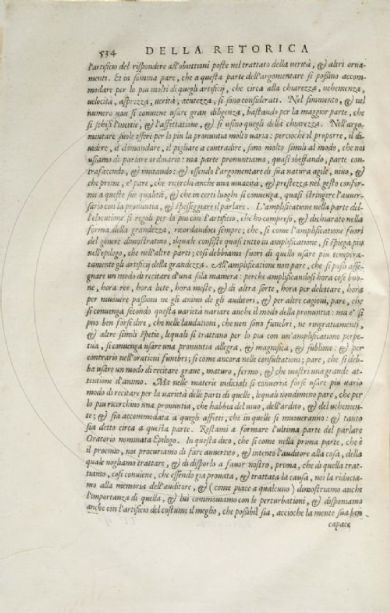 534 DELLA RETORICA
l'artificio del rispondere all'obiettioni poste nel trattato della verità, & altri orna-
menti. Et in somma pare, che a questa parte dell'argomentare si possino accom-
modare per lo piu molti di quegli artificij, che circa alla chiarezza, vehemenza,
velocità, asprezza, verità, acutezza, si sino considerati. Nel sinimento, & nel
numero non si conviene usare gran diligenza, bastando per la maggior parte, che
si schifi l'affettatione, & si usino quegli della chiarezza. Nell'argu-
mentare suole essere per lo piu la pronuntia molto varia: percioche il proporre, il di-
videre, il domandare, il pigliare a contradire, sono molto simili al modo, che noi
usiamo di parlare ordinario: ma parte pronuntiamo, quasi sbeffando, parte con-
trafacendo, & mutando: & essendo l'argomentare di sua natura agile, vivo, &
che preme, e' pare, che ricerchi anche una vivacità, & prestezza nel gesto confor-
me a queste sue qualità, & che in certi luoghi si convenga, quasi stringere l'avver-
sario con la pronuntia, & spesseggiare il parlare. L'amplificatione nella parte del-
l'elocutione si regoli per lo piu con l'artificio, che ho compreso, & dichiarato nella
forma della grandezza, ricordandoci sempre; che, si come l'amplificatione fuori
del genere dimostrativo, ilquale consiste quasi tutto in amplificatione, si spiega piu
nell'epilogo, che nell'altre parti; così debbiamo fuori di questo usare piu tempera-
tamente gli artificij della grandezza. All'amplificatione non pare, che si possi asse-
gnare un modo di recitare d'una sola maniera: perche amplificandosi hora cose buo-
ne, hora ree, hora liete, hora meste, & di altra sorte, hora per delettare, hora
per muovere passioni ne gli animi de gli auditori, & per altre cagioni, pare, che
si convenga secondo questa varietà variare anche il modo della pronuntia: ma e' si
puo ben forse dire, che nelle laudationi, che non sono funebri, ne' ringratiamenti,
& altre simili spetie, lequali si trattano per lo piu con un'amplificatione perpe-
tua, si convenga usare una pronuntia allegra, & magnifica, & sublime: per
contrario nell'orationi funebri; si come ancora nelle consultationi; pare, che si deb-
ba usare un modo di recitare grave, maturo, fermo, & che mostri una grande at-
tentione d'animo. Ma nelle materie iudiciali si converrà forse usare piu vario
modo di recitare per la varietà delle parti di quelle, lequali nondimeno pare, che per
lo piu ricerchino una pronuntia, che habbia del vivo, dell'ardito, & del vehemen-
te; & sia accommodata a quegli affetti, che in quelle si muoveranno: & tanto
sia detto circa a questa parte. Restami a formare l'ultima parte del parlare
Oratorio nominata Epilogo. In questa dico, che si come nella prima parte, che è
il proemio, noi procuriamo di fare avvertito, & intento l'auditore alla cosa, della
quale vogliamo trattare, & di disporlo a favor nostro, prima, che di quella trat-
tiamo, così conviene, che essendo già provata, & trattata la causa, noi la riducia-
mo alla memoria dell'auditore, & (come piace a qualcuno) dimostriamo anche
l'importanza di quella, & lui commoviamo con le perturbationi, & disponiamo
anche con l'artificio del costume il meglio, che possibil sia, accioche la mente sua ben
capace